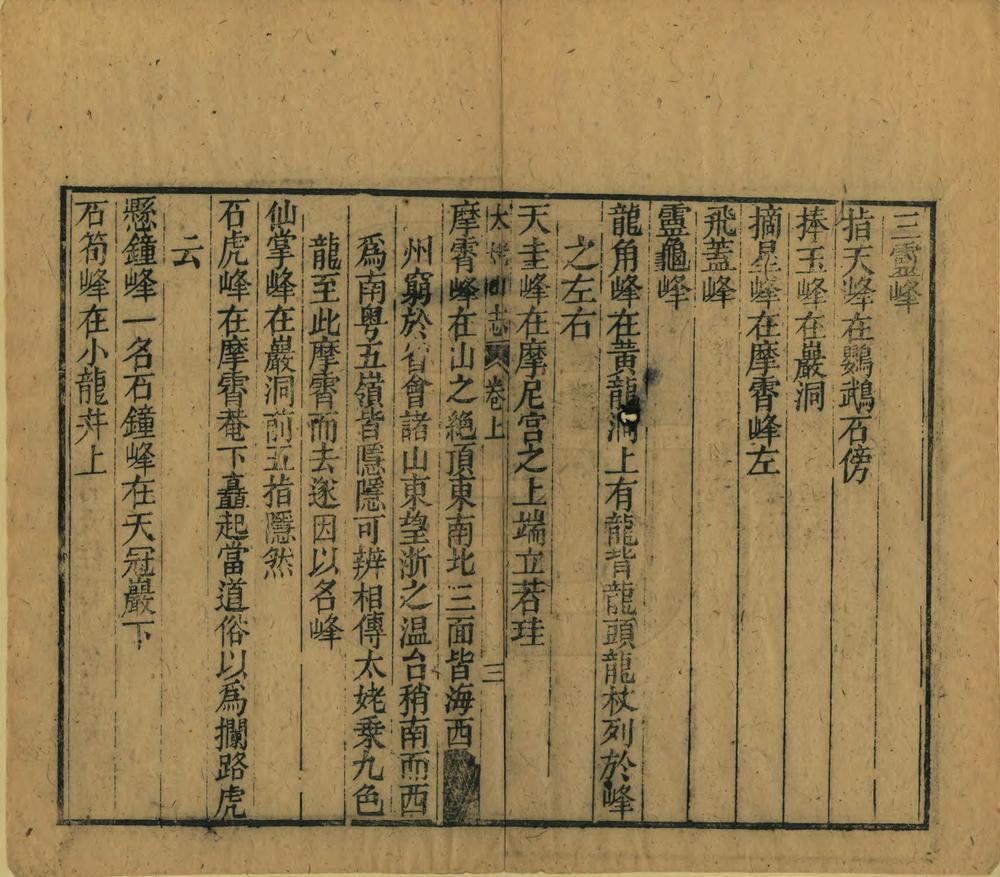 三靈峰
指天峰在鸚鵡石傍
捧玉峰在巖洞
摘星峰在摩霄峰左
飛蓋峰
靈龜峰
龍角峰在黄龍洞上有龍背龍頭龍杖列於峰
之左右
天圭峰在摩尼宫之上端立若珪
太姥山志 卷上 三
摩霄峰在山之絶頂東南北三面皆海西
州窮於省會諸山東望浙之温台稍南而西
爲南粤五嶺皆隱隱可辨相傳太姥乗九色
龍至此摩霄而去遂因以名峰
仙掌峰在巖洞前五指隱然
石虎峰在摩霄菴下矗起當道俗以爲攔路虎
云
懸鐘峰一名石鐘峰在天冠巖下
石筍峰在小龍井上